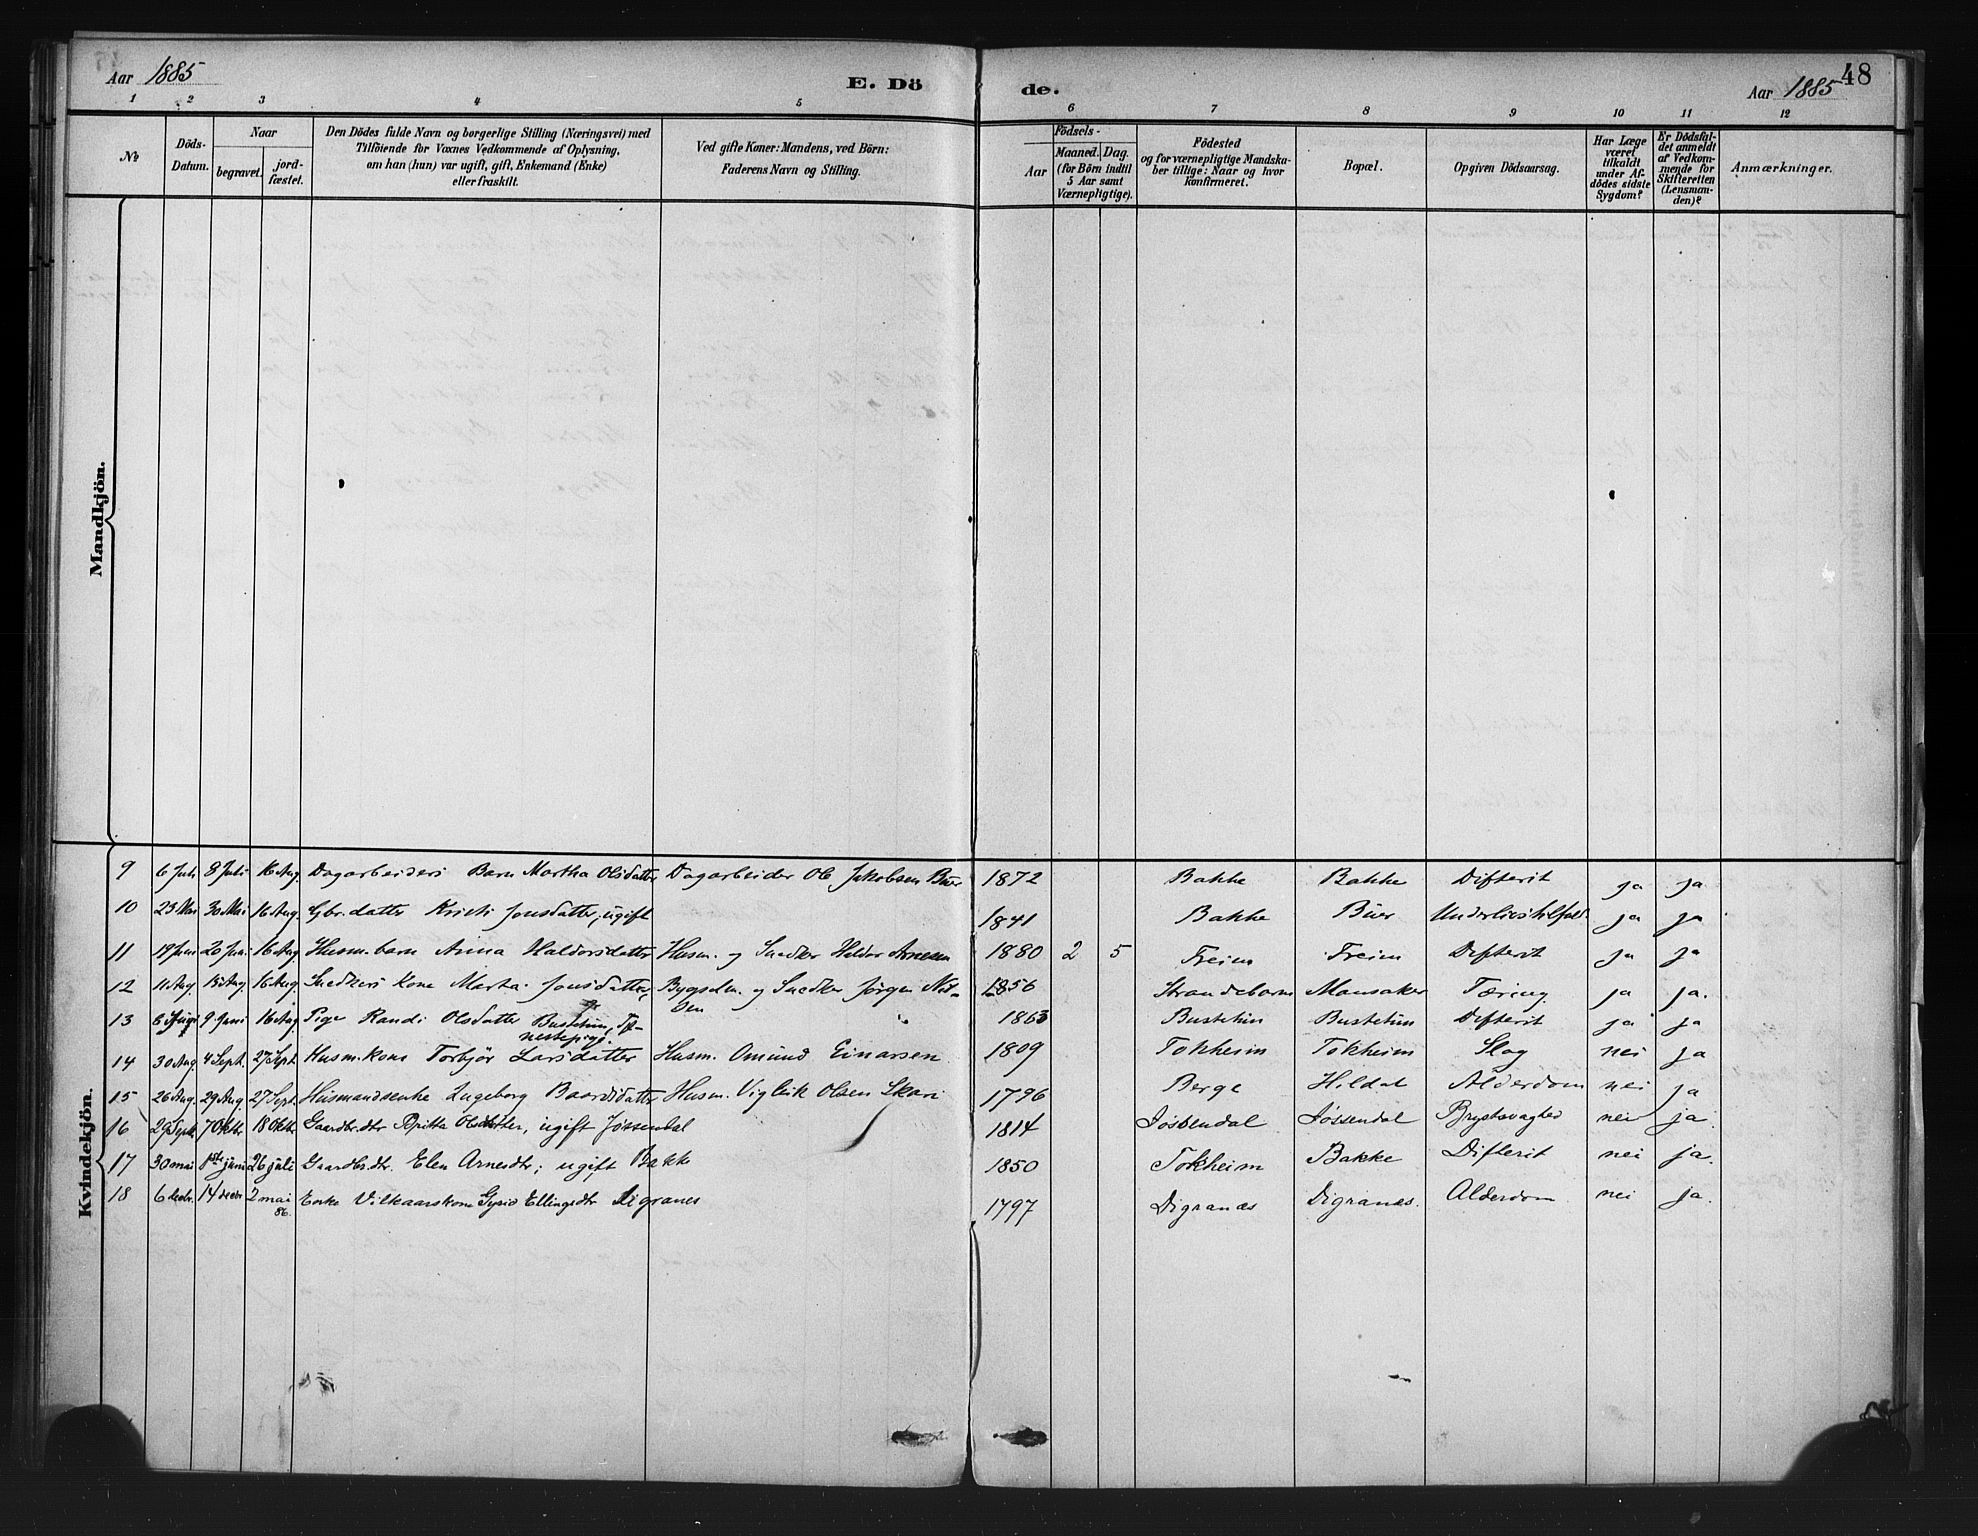 Aar 1885
E. Dö
de.
Aar 1885
48
1 2 3 4 5 6 7 8 9 10 11 12
№
Döds-
Datum.
Naar
begravet.
jord-
fæstet.
Den Dödes fulde Navn og borgerlige Stilling (Næringsvei) med
Tilföiende for Voxnes Vedkommende af Oplysning,
om han (hun) var ugift, gift, Enkemand (Enke)
eller fraskilt.
Ved gifte Koner: Mandens, ved Börn:
Faderens Navn og Stilling.
Födsels-
Aar
Maaned. Dag.
(for Börn indtil
5 Aar samt
Værnepligtige).
Födested
og for værnepligtige Mandska-
ber tillige: Naar og hvor
konfirmeret.
Bopæl.
Opgiven Dödsaarsag.
Har Læge
været
tilkaldt
under Af-
dödes sidste
Sygdom?
Er Dödsfal-
det anmeldt
af Vedkom-
mende for
Skifteretten
(Lensman-
den)?
Anmærkninger.
Mandkjön.
Kvindekjön.
9 6 Juli 8 Juli 16 Aug. Dagarbeiders Barn Martha Olsdatter Dagarbeider Ole Jakobsen Buer 1872 Bakke Bakke Difterit ja ja
10 23 Mai 30 Mai 16 Aug. Gbr.datter Kristi Jonsdatter, ugift 1841 Bakke Buer ja ja
11 19 Juni 26 Juni 16 Aug. Husm.barn Anna Haldorsdatter Husm. og Snedker Heldor Arnesen 1880 2 5 Freim Freim Difterit ja ja
12 11 Aug. 15 Aug. 16 Aug. Snedkers Kone Marta Jonsdatter, Bygselm. og Snedker Jørgen Nil-
sen 1856 Strandebarm Mansaker Tæring ja ja.
13 6 Juni 9 Juni 16 Aug. Pige Randi Olsdatter Bustetün, Tje-
nestepige. 1863 Bustetün Bustetün Difterit ja ja
14 30 Aug. 4 Sept. 27 Sept. Husm.kone Torbjør Larsdatter Husm. Omund Einarsen 1809 Tokheim Tokheim Slag nei ja
15 26 Aug. 29 Aug. 27 Sept. Husmandsenke Ingeborg Baardsdatter Husm. Vigleik Olsen Skari 1796 Berge Hildal Alderdom nei ja
16 29 Sept. 7 Oktbr 18 Oktbr. Gaardbr.dtr Britta Olsdatter, ugift Jøssendal 1814 Jøssendal Jøssendal Brystsvaghed nei ja.
17 30 mai 1ste juni 26 juli Gaardbr.dtr. Elen Arnesdtr; ugift Bakke 1850 Tokheim Bakke Difterit nei ja.
18 6 decbr. 14 decbr 2 mai
86. Enke Vilkaarskone Gyrid Ellingsdtr Digranes 1797 Digranes Digranes. Alderdom nei ja.